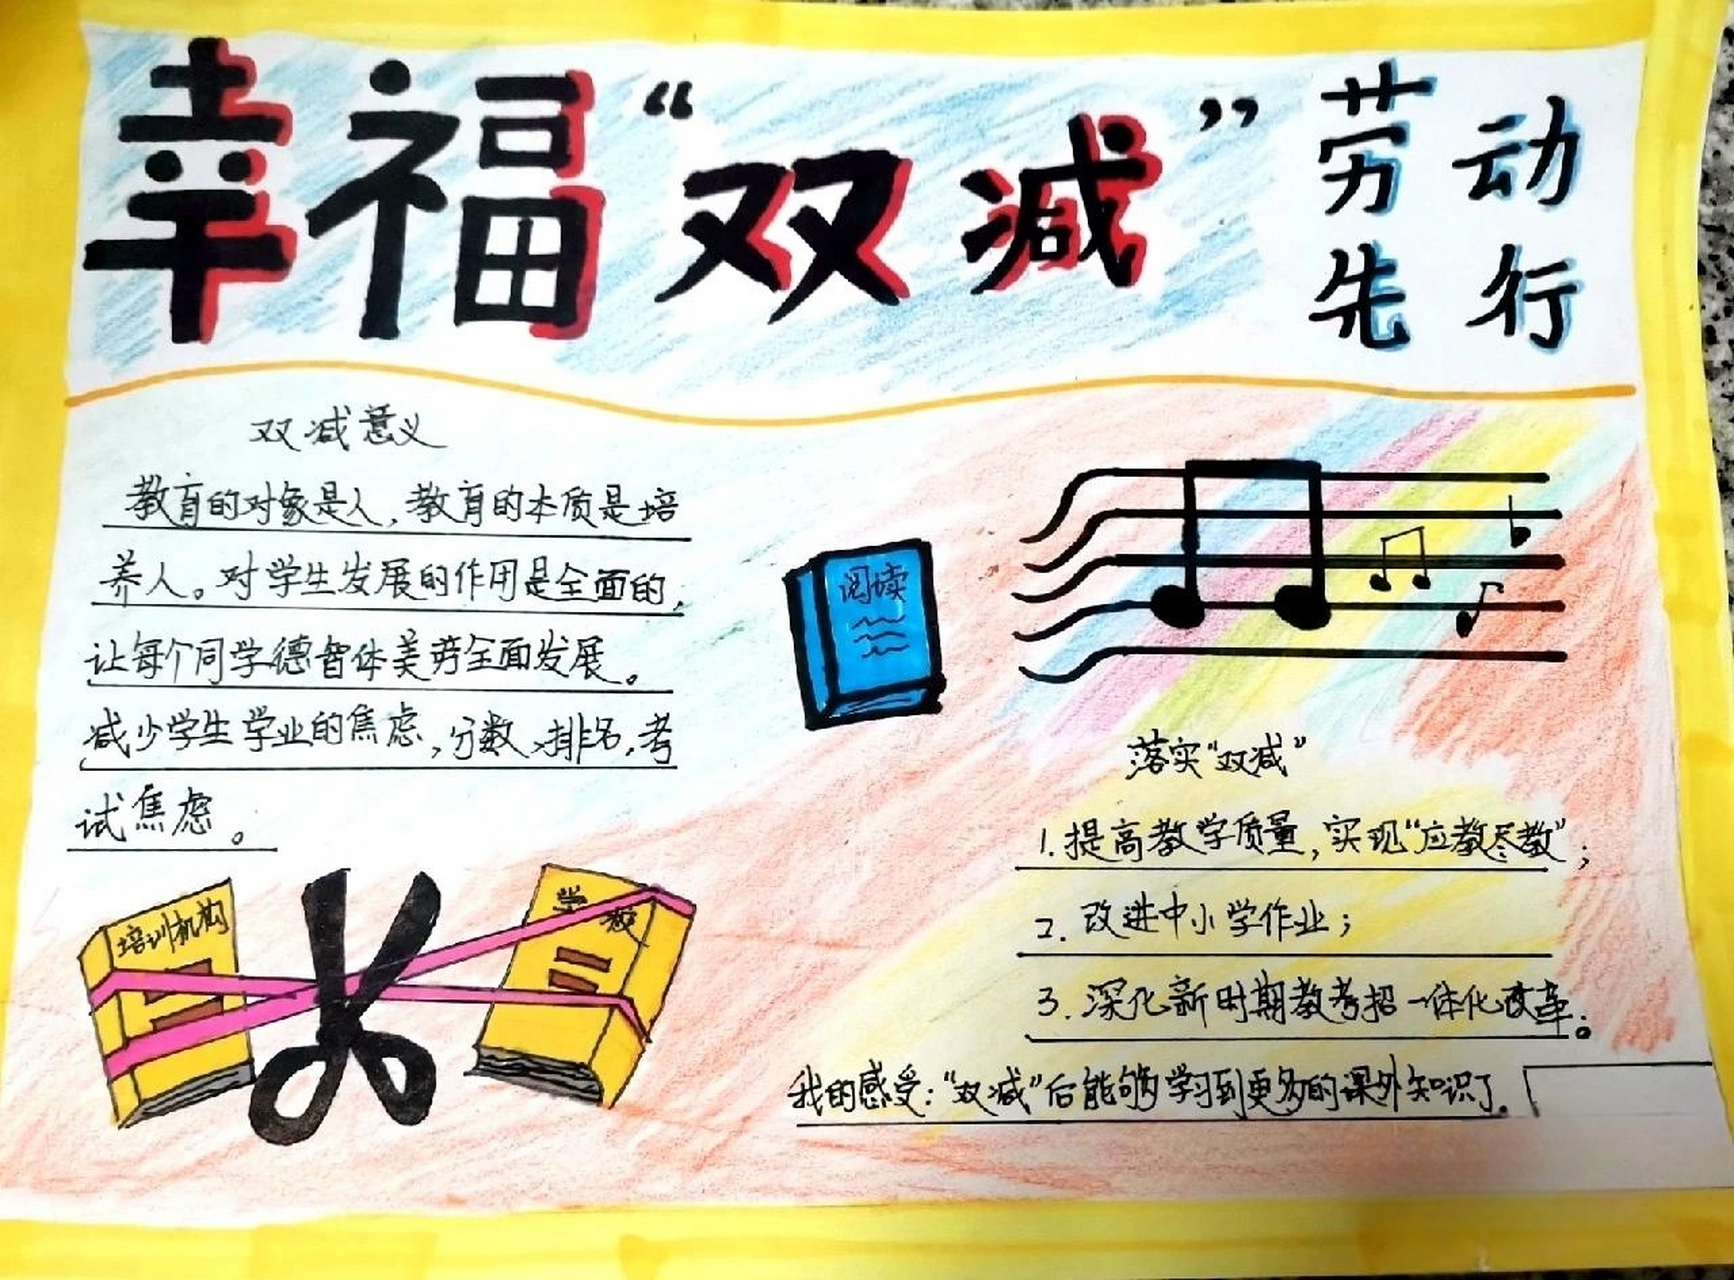 幸福“双减”
劳动
先行
双减意义
教育的对象是人,教育的本质是培
养人。对学生发展的作用是全面的,
让每个同学德智体美劳全面发展。
减少学生学业的焦虑,分数、排名,考
试焦虑。
阅读
落实“双减”
1.提高教学质量,实现“应教尽教”;
2.改进中小学作业;
3.深化新时期教考招一体化改革。
培训机构
学校
我的感受:“双减”后能够学习到更多的课外知识了。